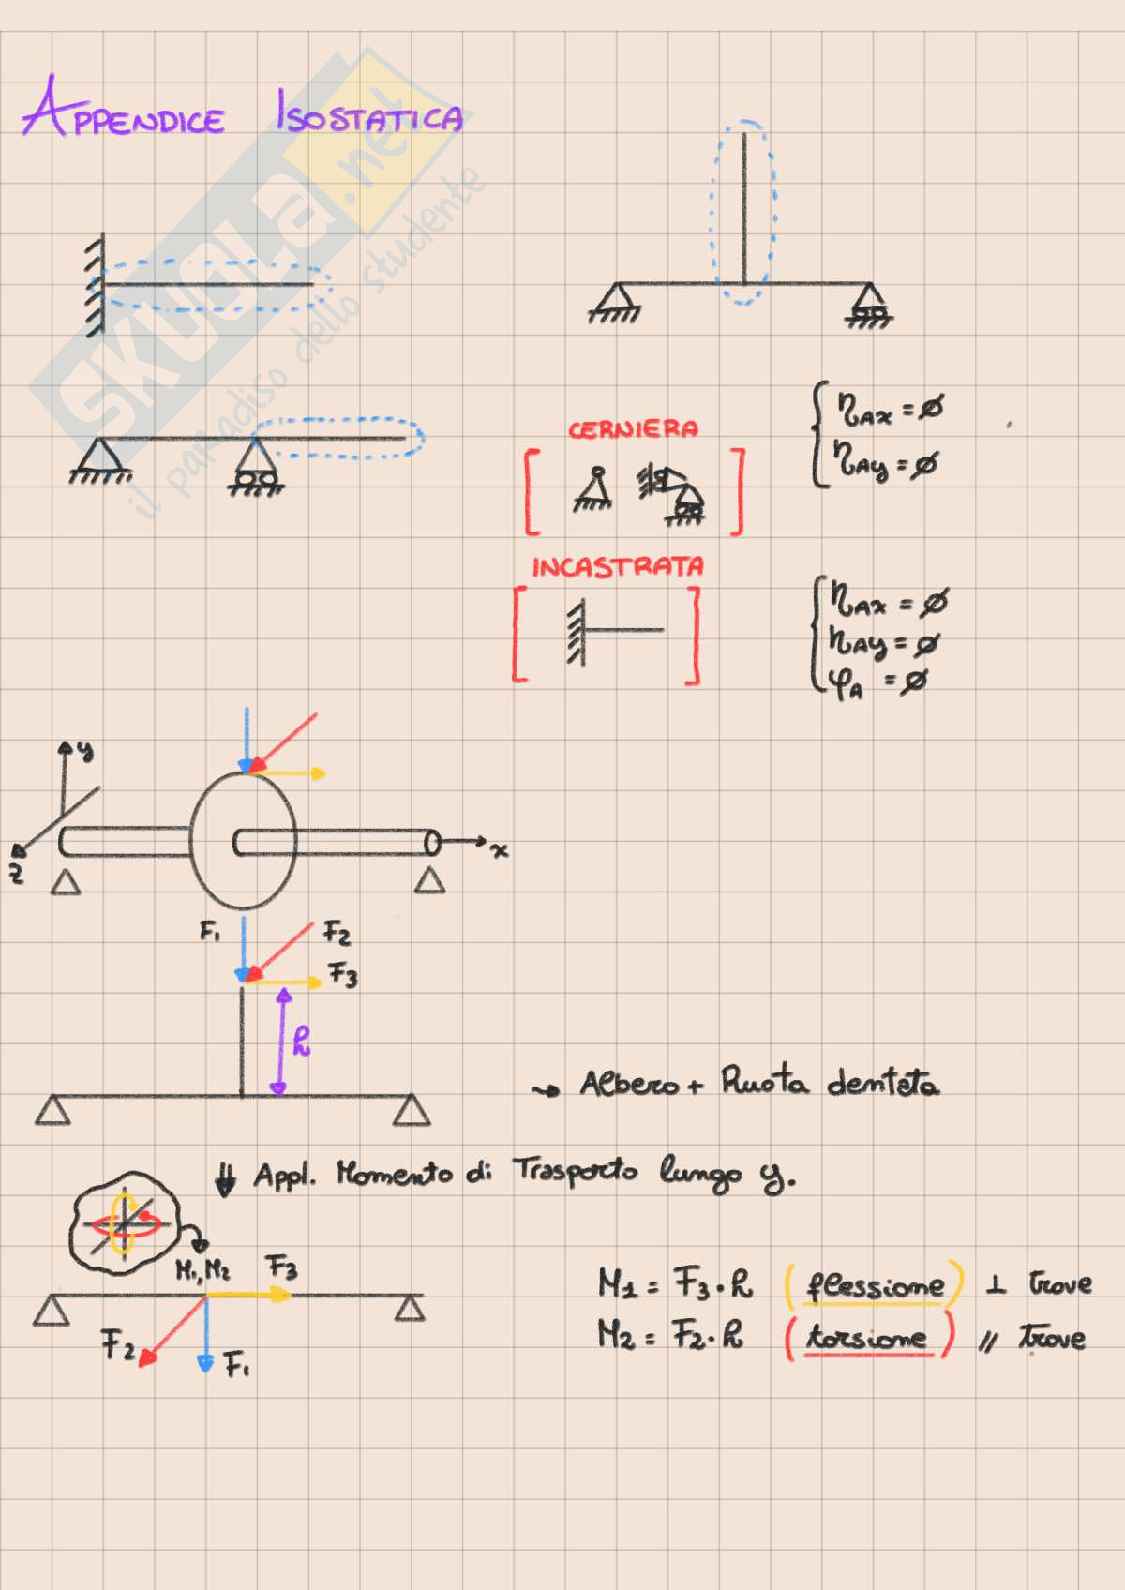 APPENDICE ISOSTATICA
SKUOLA.net
il paradiso dello studente
CERNIERA
ηAx = ∅
ηAy = ∅
INCASTRATA
ηAx = ∅
ηAy = ∅
φA = ∅
y
z
x
F₁
F₂
F₃
h
→ Albero + Ruota dentata
⇓ Appl. Momento di Trasporto lungo y.
M₁, M₂
F₃
F₂
F₁
M1 = F3 · h (flessione) ⊥ trave
M2 = F2 · h (torsione) // trave